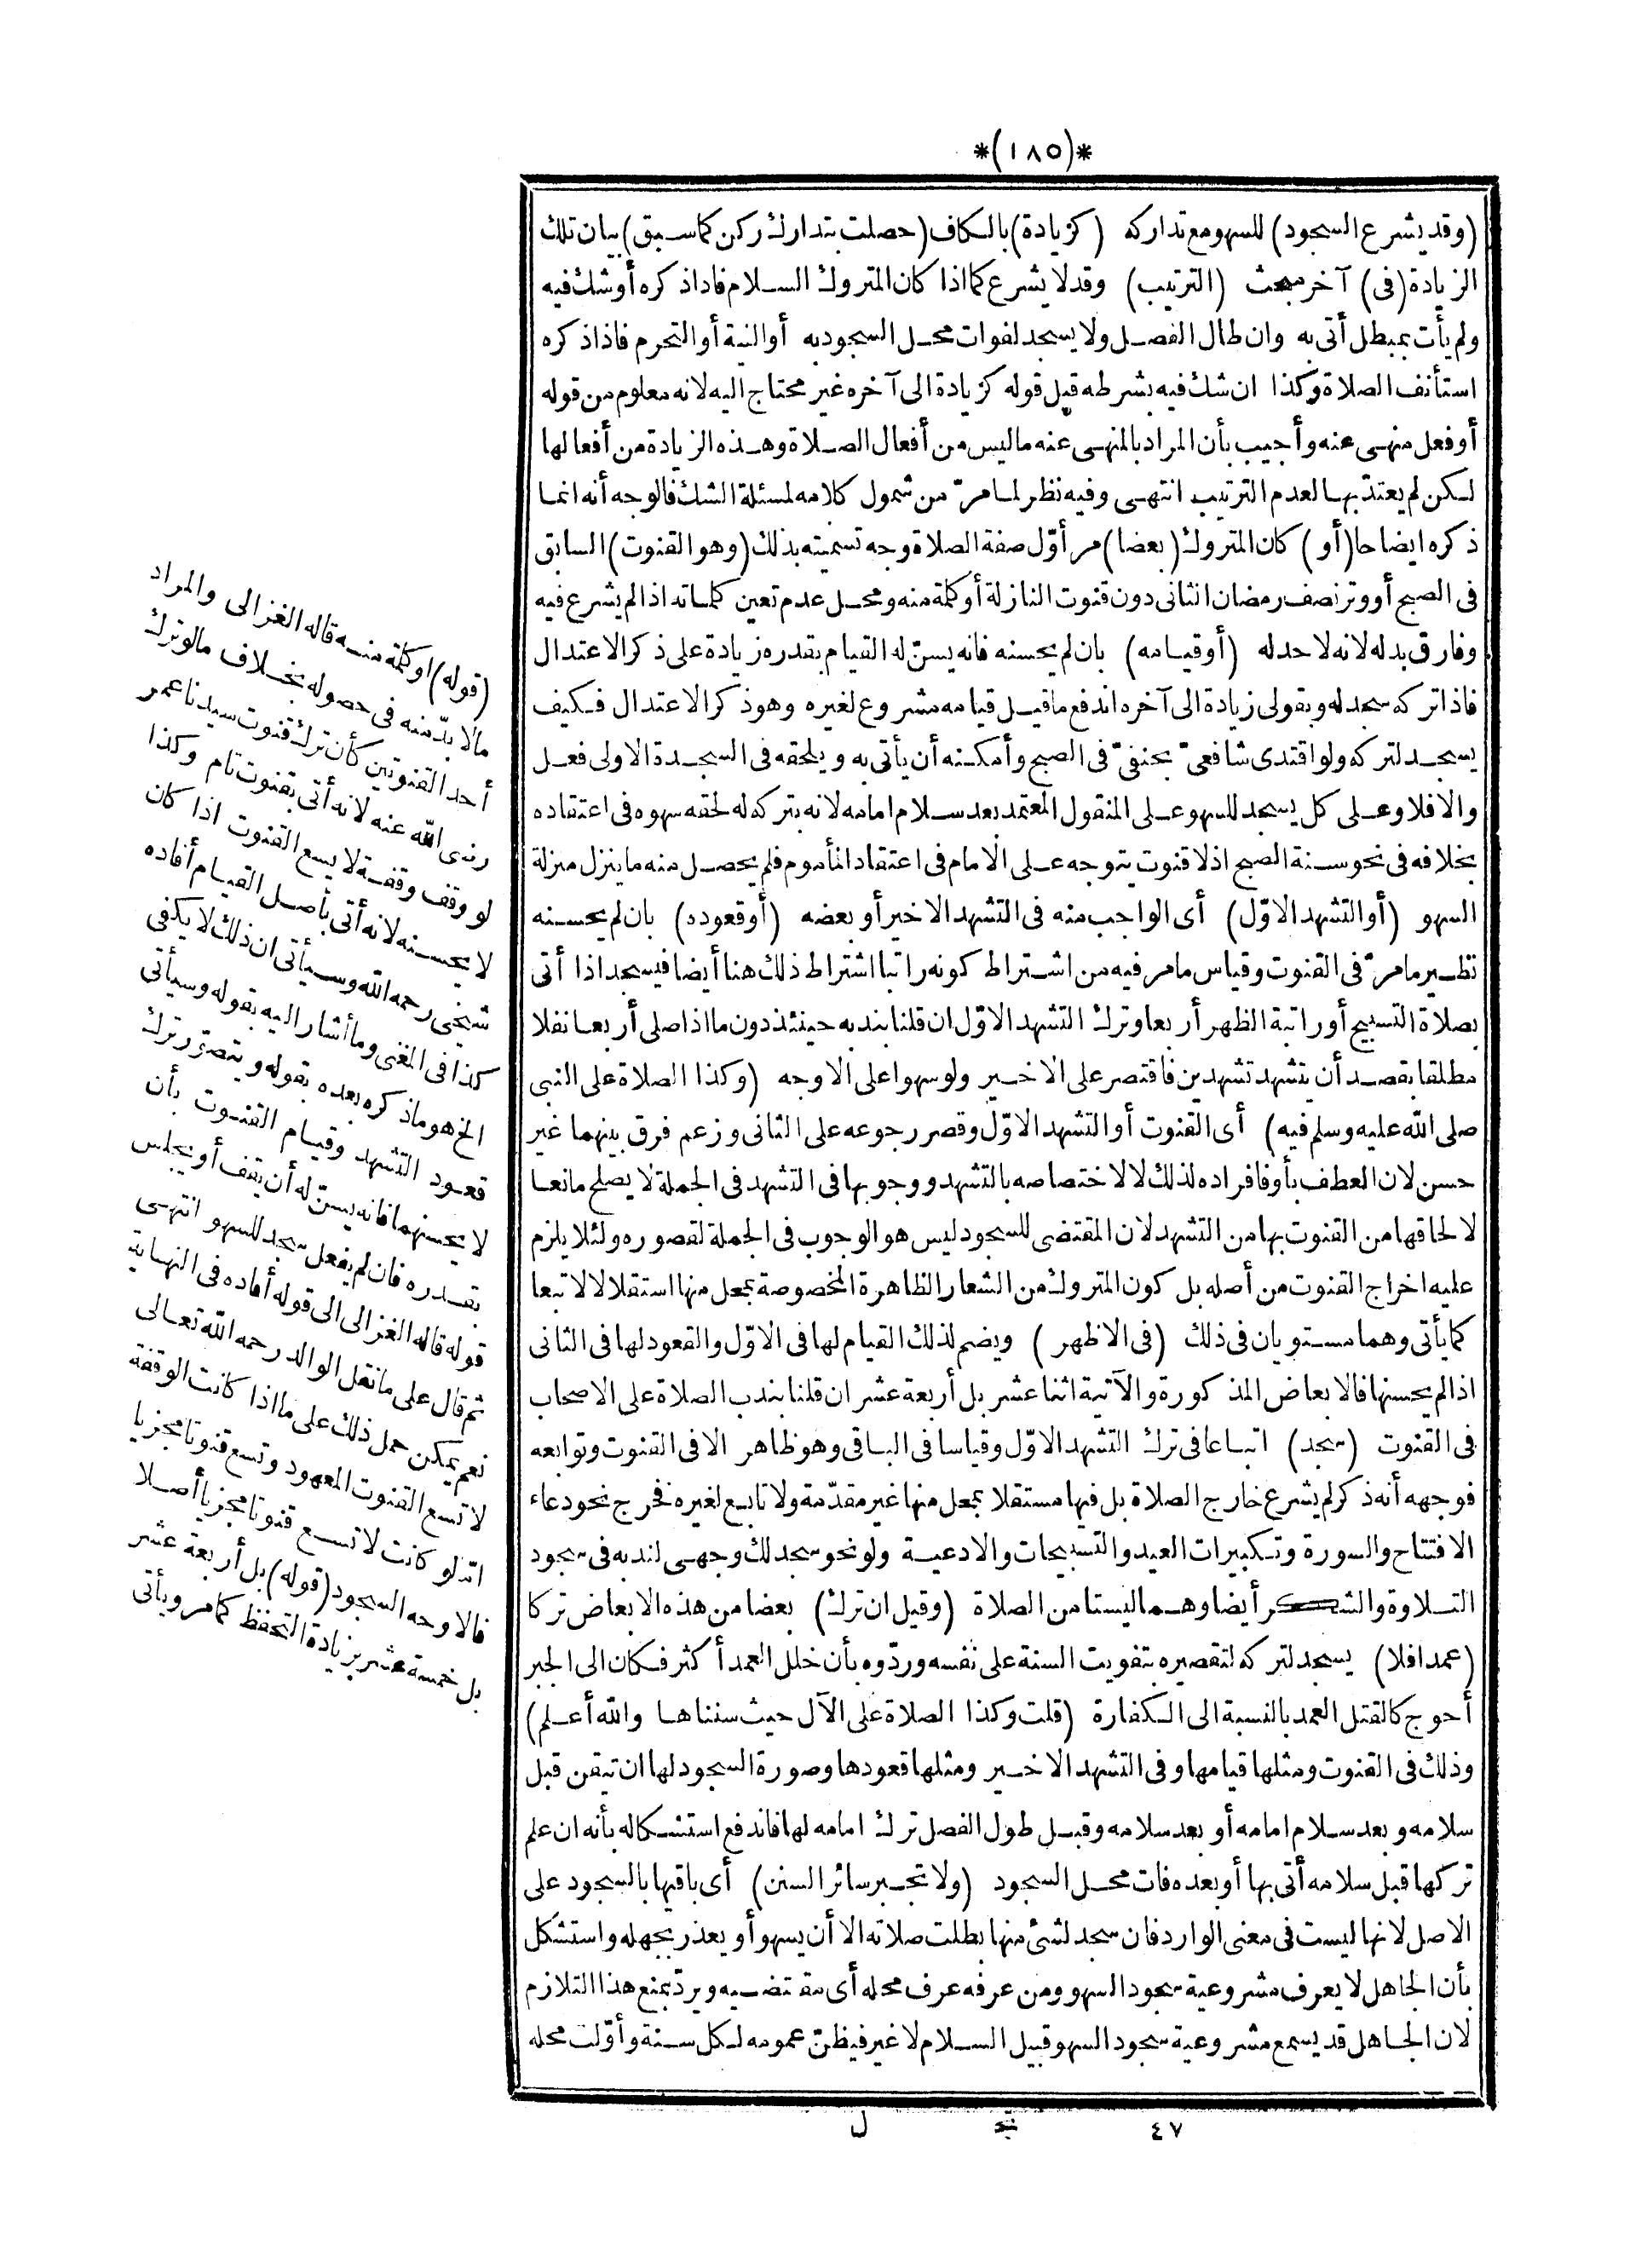 *(١٨٥)*
(وقد يشرع السجود) للسهو مع تداركه (كزيادة) بالكاف (حصلت بتدارك ركن كما سبق) ببيان تلك
الزيادة (في) آخر مبحث (الترتيب) وقد لا يشرع كما اذا كان المتروك السلام فاذا ذكره أو شك فيه
ولم يأت بمبطل أتى به وان طال الفصل ولا يسجد لفوات محل السجود به أو النية أو التحرم فاذا ذكره
استأنف الصلاة وكذا ان شك فيه بشرطه قيل قوله كزيادة الى آخره غير محتاج اليه لانه معلوم من قوله
أو فعل منهى عنه وأجيب بأن المراد بالمنهى عنه ما ليس من أفعال الصلاة وهذه الزيادة من أفعالها
لكن لم يعتدّ بها لعدم الترتيب انتهى وفيه نظر لما مرّ من شمول كلامه لمسئلة الشك فالوجه أنه انما
ذكره ايضاحا (أو) كان المتروك (بعضا) مر أوّل صفة الصلاة وجه تسميته بذلك (وهو القنوت) السابق
فى الصبح أو وتر نصف رمضان الثانى دون قنوت النازلة أو كلمة منه ومحل عدم تعين كلماته اذا لم يشرع فيه
وفارق بدله لانه لا حد له (أو قيامه) بان لم يحسنه فانه يسنّ له القيام بقدره زيادة على ذكر الاعتدال
فاذا تركه سجد له وبقولى زيادة الى آخره اندفع ما قيل قيامه مشروع لغيره وهو ذكر الاعتدال فكيف
يسجد لتركه ولو اقتدى شافعىّ بحنفىّ فى الصبح وأمكنه أن يأتى به ويلحقه فى السجدة الاولى فعل
والا فلا وعلى كل يسجد للسهو على المنقول المعتمد بعد سلام امامه لانه بتركه له لحقه سهوه فى اعتقاده
بخلافه فى نحو سنة الصبح اذ لا قنوت يتوجه على الامام فى اعتقاد المأموم فلم يحصل منه ما ينزل منزلة
السهو (أو التشهد الاوّل) أى الواجب منه فى التشهد الاخير أو بعضه (أو قعوده) بان لم يحسنه
نظير ما مرّ فى القنوت وقياس ما مر فيه من اشتراط كونه راتبا اشتراط ذلك هنا أيضا فيسجد اذا أتى
بصلاة التسبيح أو راتبة الظهر أربعا وترك التشهد الاوّل ان قلنا بندبه حينئذ دون ما اذا صلى أربعا نفلا
مطلقا بقصد أن يتشهد تشهدين فاقتصر على الاخير ولو سهوا على الاوجه (وكذا الصلاة على النبى
صلى الله عليه وسلم فيه) أى القنوت أو التشهد الاوّل وقصر رجوعه على الثانى وزعم فرق بينهما غير
حسن لان العطف بأو فافراده لذلك لا لاختصاصه بالتشهد ووجوبها فى التشهد فى الجملة لا يصلح مانعا
لالحاقها من القنوت بها من التشهد لان المقتضى للسجود ليس هو الوجوب فى الجملة لقصوره ولئلا يلزم
عليه اخراج القنوت من أصله بل كون المتروك من الشعار الظاهرة المخصوصة بمحل منها استقلالا لا تبعا
كما يأتى وهما مستويان فى ذلك (فى الاظهر) ويضم لذلك القيام لها فى الاوّل والقعود لها فى الثانى
اذا لم يحسنها فالابعاض المذكورة والآتية اثنا عشر بل أربعة عشر ان قلنا بندب الصلاة على الاصحاب
فى القنوت (سجد) اتباعا فى ترك التشهد الاوّل وقياسا فى الباقى وهو ظاهر الا فى القنوت وتوابعه
فوجهه أنه ذكر لم يشرع خارج الصلاة بل فيها مستقلا بمحل منها غير مقدّمة ولا تابع لغيره فخرج نحو دعاء
الافتتاح والسورة وتكبيرات العيد والتسبيحات والادعية ولو نحو سجد لك وجهى لندبه فى سجود
التلاوة والشكر أيضا وهما ليستا من الصلاة (وقيل ان ترك) بعضا من هذه الابعاض تركا
(عمدا فلا) يسجد لتركه لتقصيره بتفويت السنة على نفسه وردّوه بأن خلل العمد أكثر فكان الى الجبر
أحوج كالقتل العمد بالنسبة الى الكفارة (قلت وكذا الصلاة على الآل حيث سنناها والله أعلم)
وذلك فى القنوت ومثلها قيامها وفى التشهد الاخير ومثلها قعودها وصورة السجود لها ان تيقن قبل
سلامه وبعد سلام امامه أو بعد سلامه وقبل طول الفصل ترك امامه لها فاندفع استشكاله بأنه ان علم
تركها قبل سلامه أتى بها أو بعده فات محل السجود (ولا تجبر سائر السنن) أى باقيها بالسجود على
الاصل لانها ليست فى معنى الوارد فان سجد لشئ منها بطلت صلاته الا أن يسهو أو يعذر بجهله واستشكل
بأن الجاهل لا يعرف مشروعية سجود السهو ومن عرفه عرف محله أى مقتضيه ويردّ بمنع هذا التلازم
لان الجاهل قد يسمع مشروعية سجود السهو قبيل السلام لا غير فيظنّ عمومه لكل سنة وأوّلت محله
(قوله) او كلمة منه قاله الغزالى والمراد
ما لا بدّ منه فى حصوله بخلاف ما لو ترك
أحد القنوتين كأن ترك قنوت سيدنا عمر
رضى الله عنه لانه أتى بقنوت تام وكذا
لو وقف وقفة لا يسع القنوت اذا كان
لا يحسنه لانه أتى بأصل القيام أفاده
شيخى رحمه الله وسيأتى ان ذلك لا يكفى
كذا فى المغنى وما أشار اليه بقوله وسيأتى
الخ هو ما ذكره بعده بقوله ويتصوّر ترك
قعود التشهد وقيام القنوت بأن
لا يحسنهما فانه يسنّ له أن يقف أو يجلس
بقدره فان لم يفعل سجد للسهو انتهى
قوله قاله الغزالى الى قوله أفاده فى النهاية
ثم قال على ما نقل الوالد رحمه الله تعالى
نعم يمكن حمل ذلك على ما اذا كانت الوقفة
لا تسع القنوت المعهود وتسع قنوتا مجزيا
اتد لو كانت لا تسع قنوتا مجزيا أصلا
فالاوجه السجود (قوله) بل أربعة عشر
بل خمسة عشر بزيادة التحفظ كما مر ويأتى
٤٧ تحـ ل